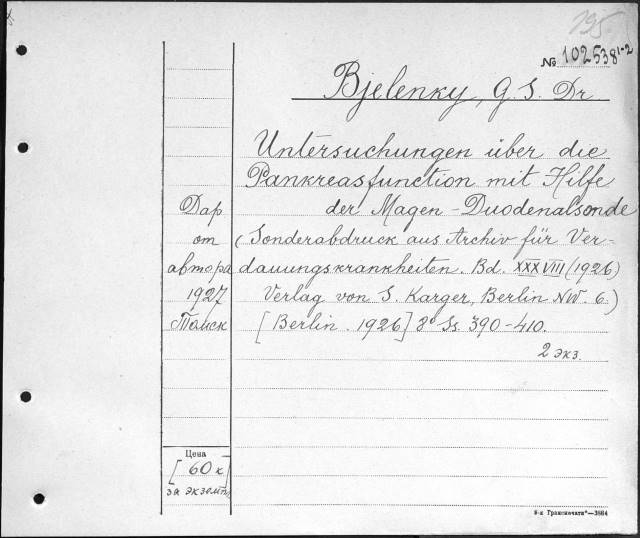 195.
№ 102538 1-2
Bjelenky, G. S. Dr.
Untersuchungen über die
Pankreasfunction mit Hilfe
der Magen-Duodenalsonde
(Sonderabdruck aus Archiv für Ver-
dauungskrankheiten. Bd. XXXVIII (1926)
Verlag von S. Karger, Berlin NW. 6.)
[Berlin. 1926] 8° Ss. 390-410.
2 экз.
Дар
от
автора
1927
Томск
Цена
[60 к]
за экземп.